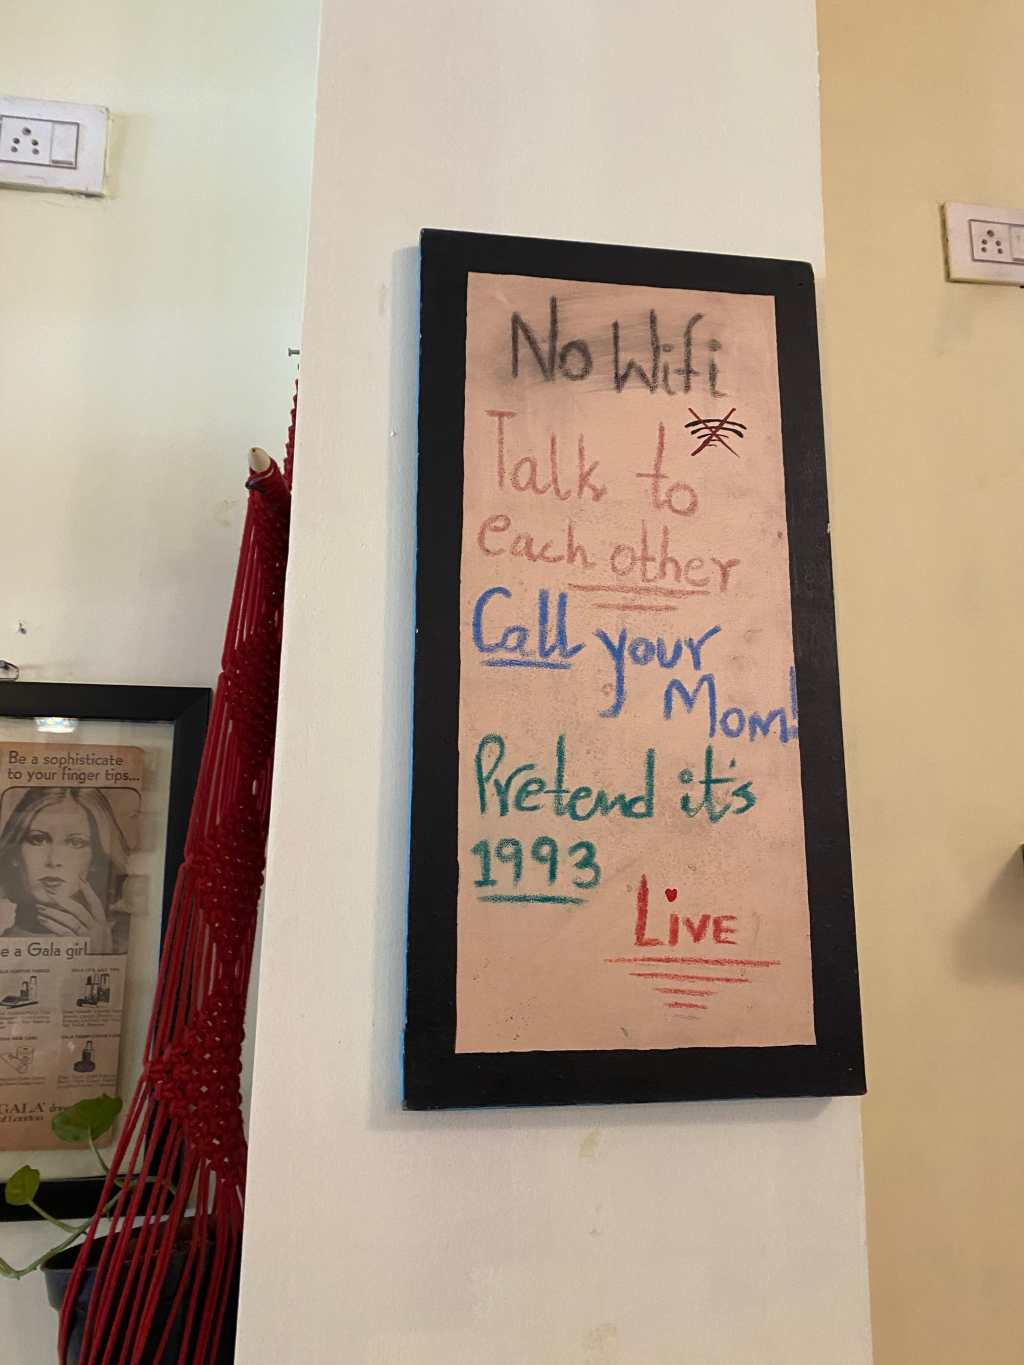 No Wifi
Talk to
each other
Call your
Mom!
Pretend it's
1993
Live
Be a sophisticate
to your finger tips...
e a Gala girl
GALA
of London